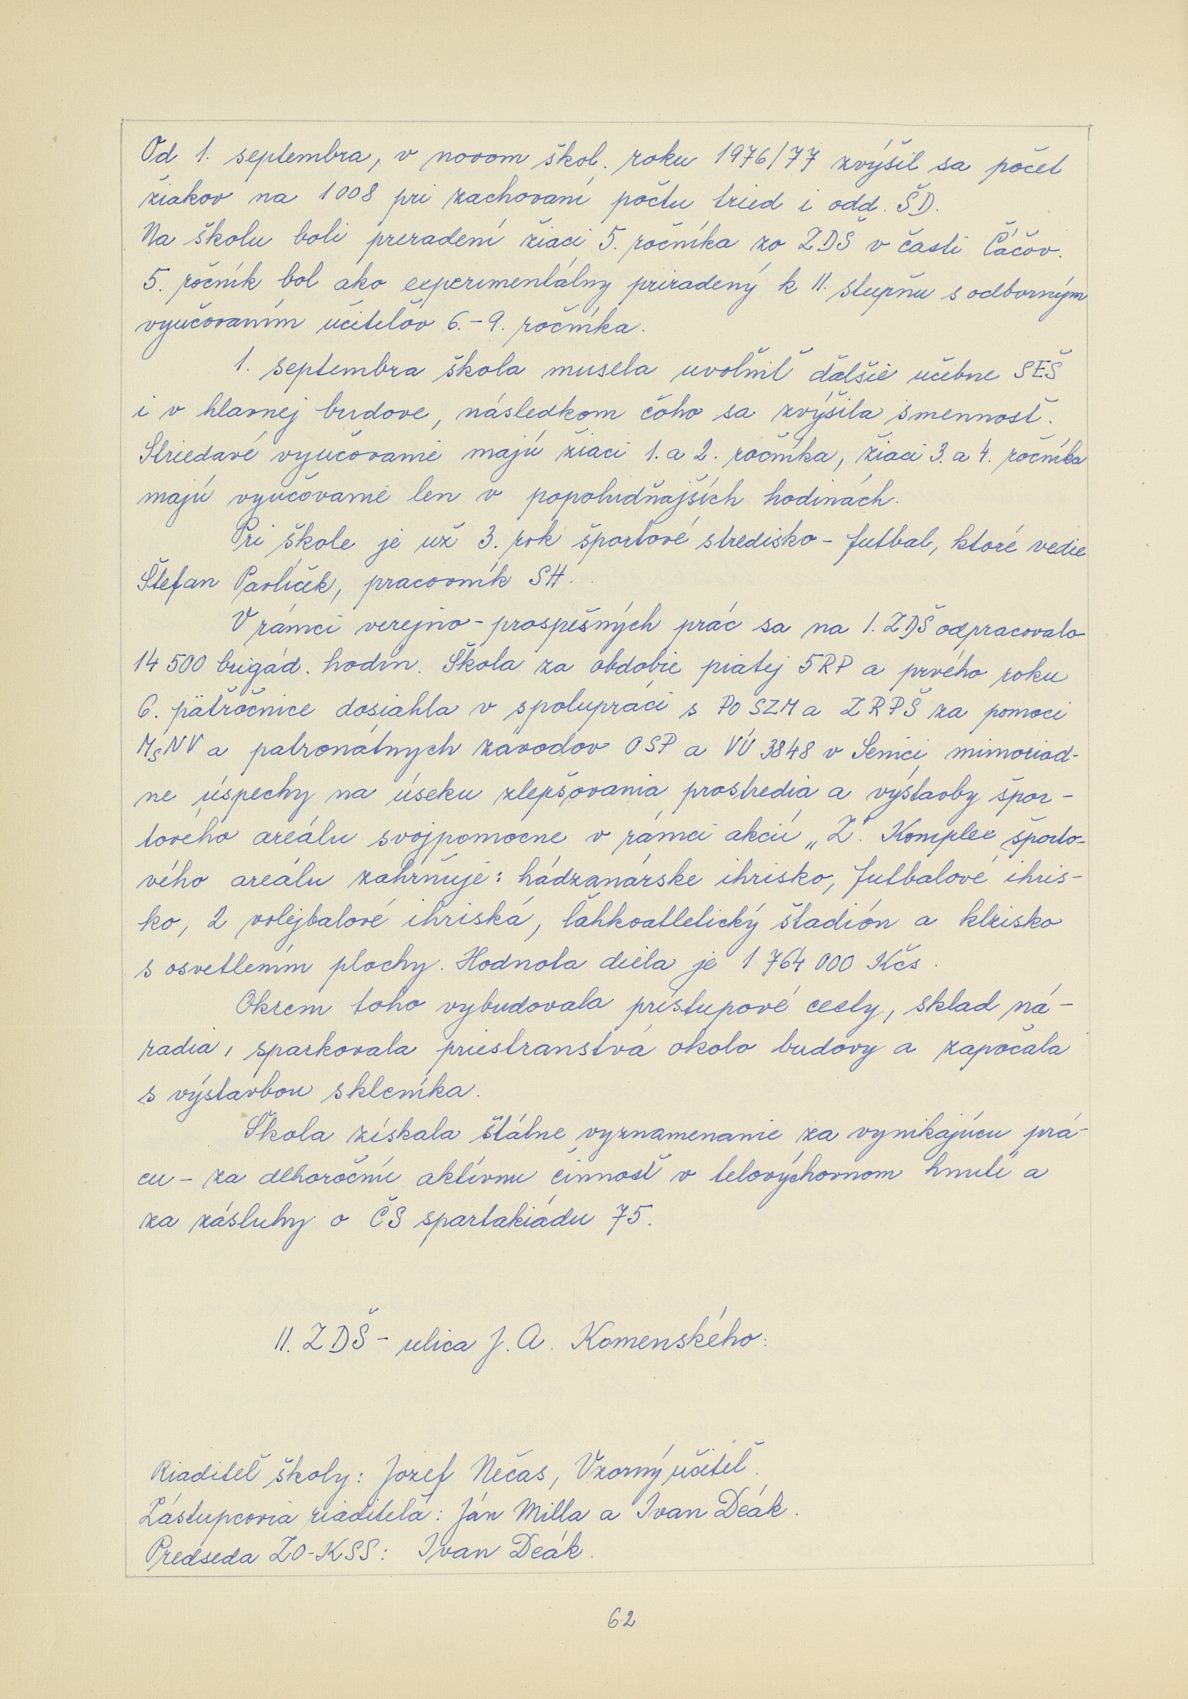 Od 1. septembra, v novom škol. roku 1976/77 zvýšil sa počet
žiakov na 1008 pri zachovaní počtu tried i odd. ŠD.
Na školu boli preradení žiaci 5. ročníka zo ZDŠ v časti Čáčov.
5. ročník bol ako experimentálny priradený k II. stupňu s odborným
vyučovaním učiteľov 6.-9. ročníka.
1. septembra škola musela uvoľniť ďalšie učebne SEŠ
i v hlavnej budove, následkom čoho sa zvýšila smennosť.
Striedavé vyučovanie majú žiaci 1. a 2. ročníka, žiaci 3. a 4. ročníka
majú vyučovanie len v popoludňajších hodinách.
Pri škole je už 3. rok športové stredisko - futbal, ktoré vedie
Štefan Pavlíček, pracovník SH.
V rámci verejno-prospešných prác sa na 1. ZDŠ odpracovalo
14 500 brigád. hodín. Škola za obdobie piatej 5RP a prvého roku
6. päťročnice dosiahla v spolupráci s PO SZM a ZRPŠ za pomoci
MsNV a patronátnych závodov OSP a VÚ 3848 v Senici mimoriad-
ne úspechy na úseku zlepšovania prostredia a výstavby špor-
tového areálu svojpomocne v rámci akcií „Z". Komplex športo-
vého areálu zahrňuje: hádzanárske ihrisko, futbalové ihris-
ko, 2 volejbalové ihriská, ľahkoatletický štadión a klzisko
s osvetlením plochy. Hodnota diela je 1 764 000 Kčs.
Okrem toho vybudovala prístupové cesty, sklad ná-
radia, sparkovala priestranstvá okolo budovy a započala
s výstavbou skleníka.
Škola získala štátne vyznamenanie za vynikajúcu prá-
cu - za dlhoročnú aktívnu činnosť v telovýchovnom hnutí a
za zásluhy o ČS spartakiádu 75.
II. ZDŠ - ulica J. A. Komenského:
Riaditeľ školy: Jozef Nečas, Vzorný učiteľ.
Zástupcovia riaditeľa: Ján Milla a Ivan Deák.
Predseda ZO-KSS: Ivan Deák.
62